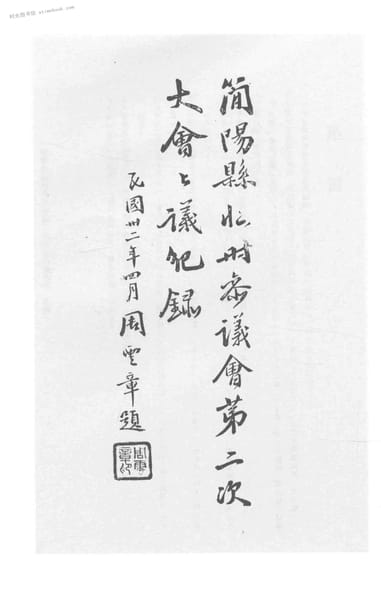 簡陽縣臨時參議會第二次
大會々議紀錄
民國卅二年四月周雲章題
周雲章印